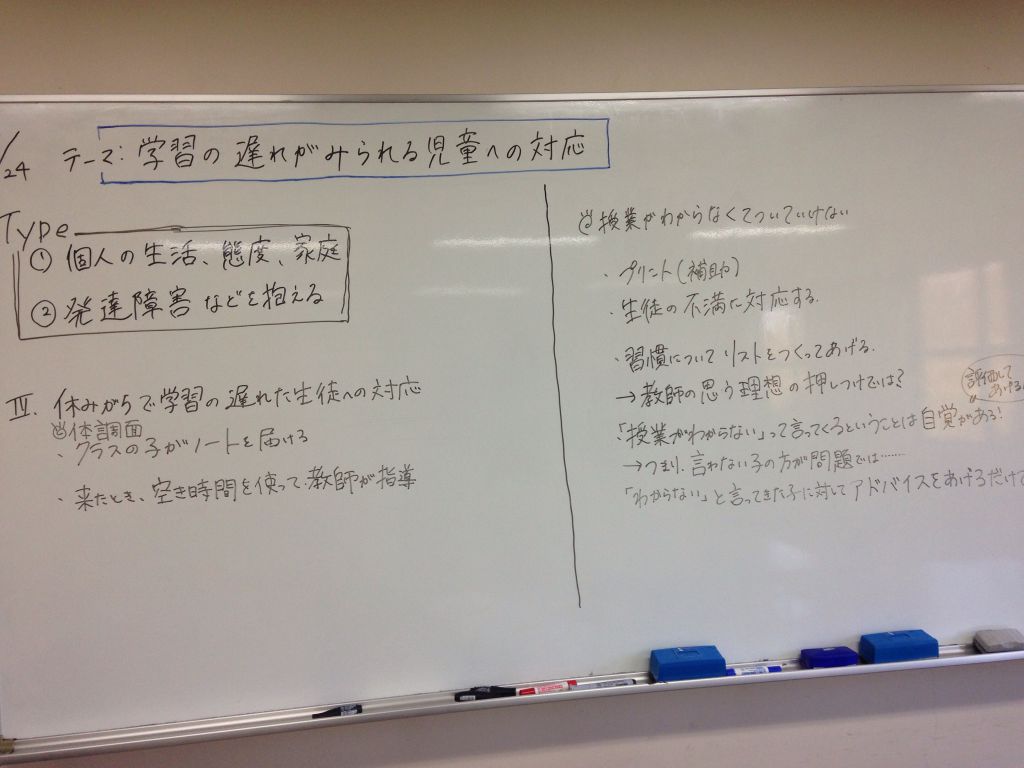 /24 テーマ: 学習の遅れがみられる児童への対応
Type
① 個人の生活、態度、家庭
② 発達障害などを抱える
Ⅳ. 休みがちで学習の遅れた生徒への対応
体調面
・クラスの子がノートを届ける
・来たとき、空き時間を使って教師が指導
授業がわからなくてついていけない
・プリント(補助)
・生徒の不満に対応する.
・習慣についてリストをつくってあげる.
→教師の思う理想の押しつけでは?
評価して
あげる
・「授業がわからない」って言ってくるということは自覚がある!
→つまり、言わない子の方が問題では……
「わからない」と言ってきた子に対してアドバイスをあげるだけで